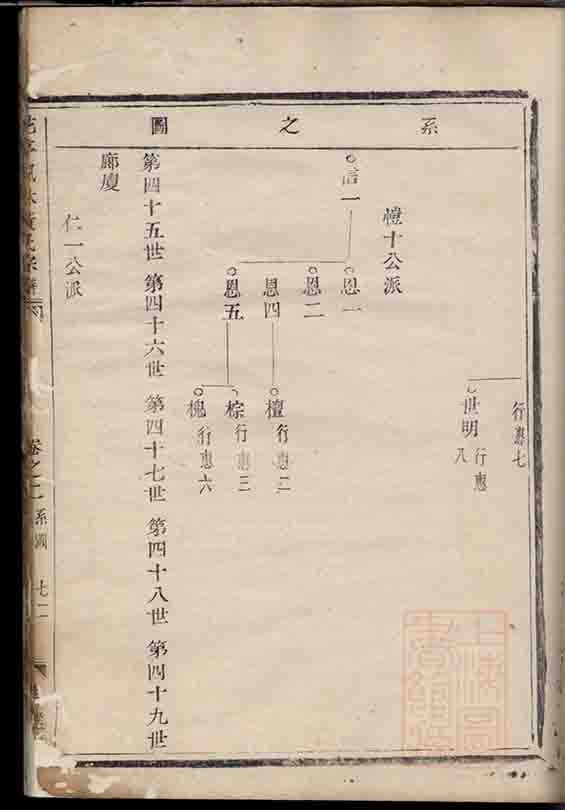 系之圖
行惠七
世明 行惠八
禮十公派
信一
恩一
恩二
恩四
恩五
檀 行惠二
棕 行惠三
槐 行惠六
第四十五世 第四十六世 第四十七世 第四十八世 第四十九世
廊廈
仁一公派
卷之二 系圖 七二